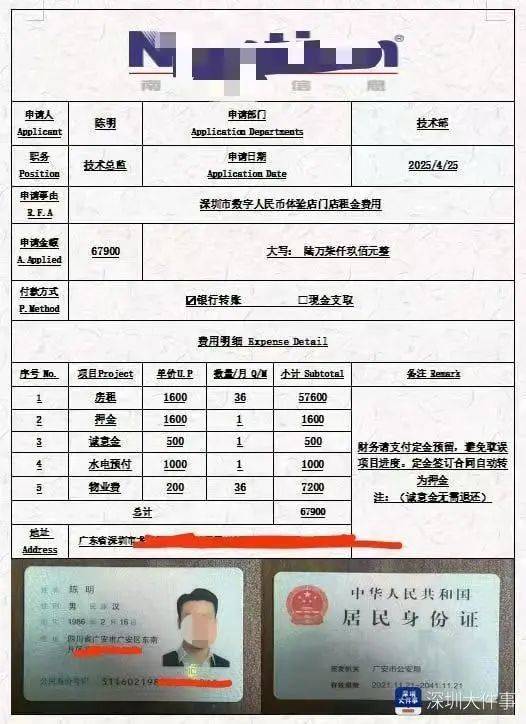 南 信息
申请人 陈明 申请部门 技术部
Applicant Application Departments
职务 技术总监 申请日期 2025/4/25
Position Application Date
申请事由 深圳市数字人民币体验店门店租金费用
R.F.A
申请金额 67900 大写: 陆万柒仟玖佰元整
A.Applied
付款方式 ☑银行转账 □现金支取
P.Method
费用明细 Expense Detail
序号 No. 项目Project 单价U.P 数量/月 Q/M 小计 Subtotal 备注 Remark
1 房租 1600 36 57600
2 押金 1600 1 1600
3 诚意金 500 1 500
4 水电预付 1000 1 1000
5 物业费 200 36 7200
财务请支付定金预留,避免耽误
项目进度。定金签订合同自动转
为押金
注:(诚意金无需退还)
总计 67900
地址 广东省深圳市
Address
姓名 陈明
性别 男 民族 汉
出生 1986 年 2 月 16 日
住址 四川省广安市广安区东南
公民身份号码 511602198
中华人民共和国
居民身份证
签发机关 广安市公安局
有效期限 2021.11.21-2041.11.21
深圳大件事
深圳大件事